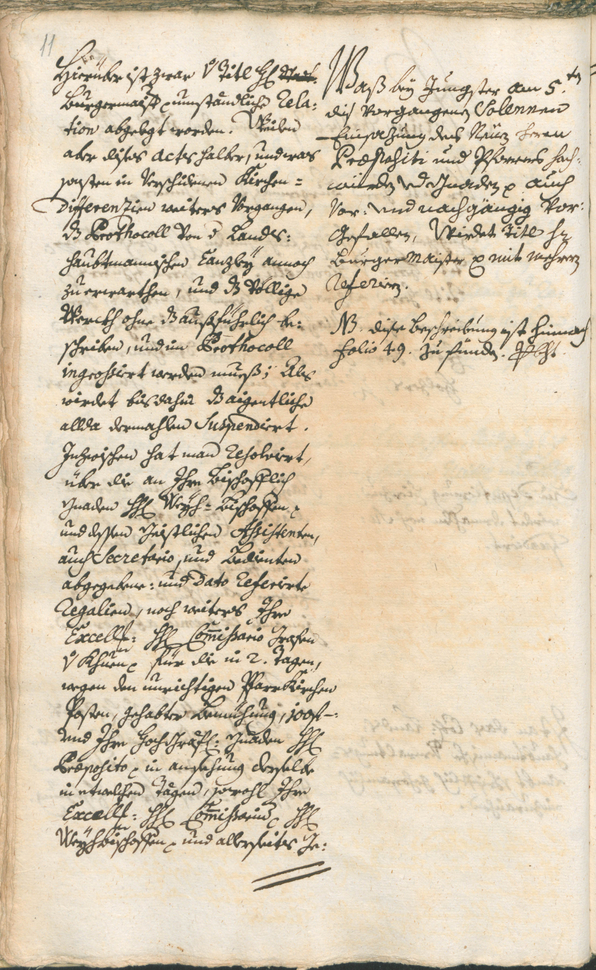 11
Hierüber ist zwar v Titl H:
Burgermaister p umständliche Rela:
tion abgelegt worden. Weilen
aber dises acts halber, und was
sonsten in verschidenen Kirchen=
Differenzien weiters vorgangen,
dz Prothocoll von d Landts:
haubtmanischen Canzley annoch
zu erwarthen, und dz völlige
Werckh ohne dz ausführlich be:
schriben, und in Prothocoll
ingrossiert werden mueß; Als
wirdet bis dahin dz aigentliche
allda dermahlen Suspendiert.
Inzwischen hat man resolviert,
über die an Ihro Bischofflich
Gnaden H: Weyh=Bischoffen p
und dessen Geistlichen Assistenten,
auch Secretario, und Bedienten
abgegebene: und dato referierte
Regalien, noch weiters Ihro
Excell: H: Comissario Grafen
v Khuen p für die in 2. Tagen,
wegen den unrichtigen PfarrKirchen
Posten, gehabte Bemühung, 100 f–:
und Ihro HochGräfl: Gnaden H:
Præposito p in ansehung derselbe
in etwelchen Tägen, sowohl Ihro
Excell: H: Comissarium p H:
Weyhbischoffen p und allerseites Ge:

Waß bey Jüngster am 5.ten
diß vorgangenen Solennen
Einsezung des Neüen Herrn
Præpositi und Pfarrers hoch=
würden und Gnaden p auch
vor: und nachgängig vor:
gefallen, wirdet Titl H:
Burgermaister p mit mehrern
referiern.
NB. dise beschreibung ist hienach
folio 49. zu finden.